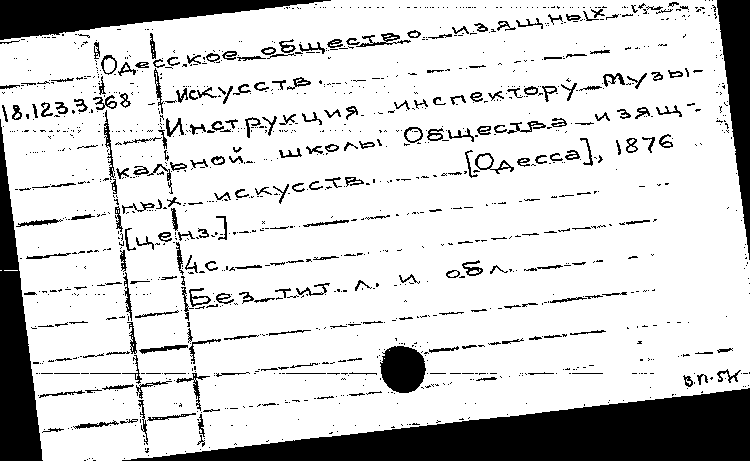 Одесское общество изящных
искусств.
18.123.3.368
Инструкция инспектору музы-
кальной школы Общества изящ-
ных искусств. [Одесса], 1876
[ценз.].
4 с.
Без тит. л. и обл.